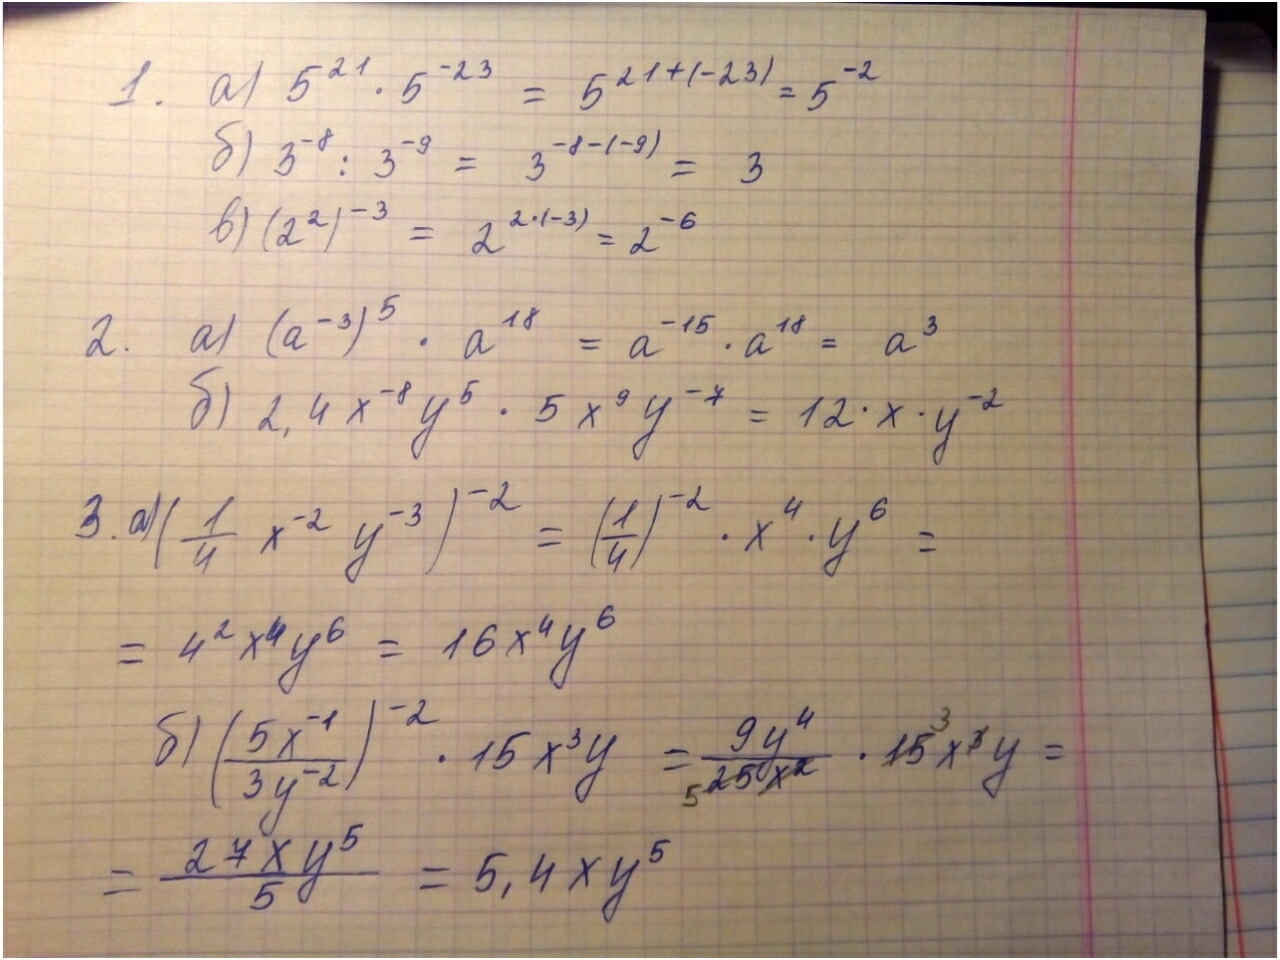 1. а) 5²¹ · 5⁻²³ = 5²¹⁺⁽⁻²³⁾ = 5⁻²
б) 3⁻⁸ : 3⁻⁹ = 3⁻⁸⁻⁽⁻⁹⁾ = 3
в) (2²)⁻³ = 2^{2·(-3)} = 2⁻⁶
2. а) (a⁻³)⁵ · a¹⁸ = a⁻¹⁵ · a¹⁸ = a³
б) 2,4x⁻⁸y⁵ · 5x⁹y⁻⁷ = 12 · x · y⁻²
3. а) (1/4 x⁻² y⁻³)⁻² = (1/4)⁻² · x⁴ · y⁶ =
= 4²x⁴y⁶ = 16x⁴y⁶
б) (5x⁻¹/3y⁻²)⁻² · 15x³y = 9y⁴/25x² 5 · 15 3 x³y =
= 27xy⁵/5 = 5,4xy⁵